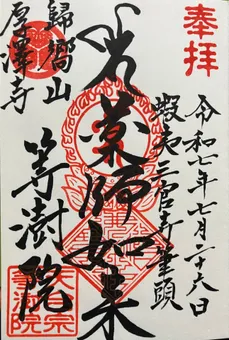 奉拝
令和七年七月二十六日
蝦夷三官寺筆頭
薬師如来
歸嚮山
厚澤寺
等澍院
天台宗
等澍院